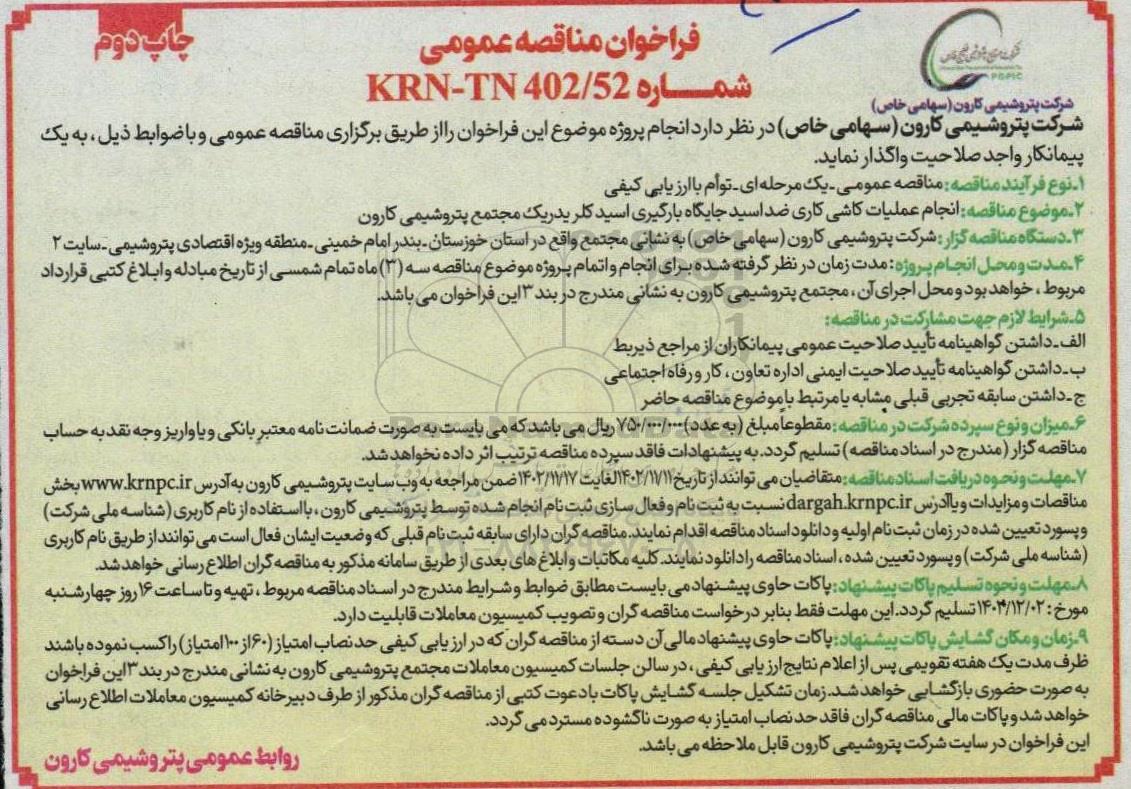 چاپ دوم
فراخوان مناقصه عمومی
شماره KRN-TN 402/52
PGPIC
شرکت پتروشیمی کارون (سهامی خاص)
شرکت پتروشیمی کارون (سهامی خاص) در نظر دارد انجام پروژه موضوع این فراخوان را از طریق برگزاری مناقصه عمومی و با ضوابط ذیل ، به یک
پیمانکار واجد صلاحیت واگذار نماید.
۱ـ نوع فرآیند مناقصه: مناقصه عمومی ـ یک مرحله ای ـ توأم با ارزیابی کیفی
۲ـ موضوع مناقصه: انجام عملیات کاشی کاری ضد اسید جایگاه بارگیری اسید کلریدریک مجتمع پتروشیمی کارون
۳ـ دستگاه مناقصه گزار: شرکت پتروشیمی کارون (سهامی خاص) به نشانی مجتمع واقع در استان خوزستان ـ بندر امام خمینی ـ منطقه ویژه اقتصادی پتروشیمی ـ سایت ۲
۴ـ مدت و محل انجام پروژه: مدت زمان در نظر گرفته شده برای انجام و اتمام پروژه موضوع مناقصه سه (۳) ماه تمام شمسی از تاریخ مبادله و ابلاغ کتبی قرارداد
مربوط ، خواهد بود و محل اجرای آن ، مجتمع پتروشیمی کارون به نشانی مندرج در بند ۳ این فراخوان می باشد.
۵ـ شرایط لازم جهت مشارکت در مناقصه:
الف ـ داشتن گواهینامه تأیید صلاحیت عمومی پیمانکاران از مراجع ذیربط
ب ـ داشتن گواهینامه تأیید صلاحیت ایمنی اداره تعاون ، کار و رفاه اجتماعی
ج ـ داشتن سابقه تجربی قبلی مشابه یا مرتبط با موضوع مناقصه حاضر
۶ـ میزان و نوع سپرده شرکت در مناقصه: مقطوعاً مبلغ (به عدد) ۷۵۰/۰۰۰/۰۰۰ ریال می باشد که می بایست به صورت ضمانت نامه معتبر بانکی و یا واریز وجه نقد به حساب
مناقصه گزار (مندرج در اسناد مناقصه) تسلیم گردد. به پیشنهادات فاقد سپرده مناقصه ترتیب اثر داده نخواهد شد.
۷ـ مهلت و نحوه دریافت اسناد مناقصه: متقاضیان می توانند از تاریخ ۱۴۰۲/۱۱/۱۱ لغایت ۱۴۰۲/۱۱/۱۷ ضمن مراجعه به وب سایت پتروشیمی کارون به آدرس www.krnpc.ir بخش
مناقصات و مزایدات و یا آدرس dargah.krnpc.ir نسبت به ثبت نام و فعال سازی ثبت نام انجام شده توسط پتروشیمی کارون ، با استفاده از نام کاربری (شناسه ملی شرکت)
و پسورد تعیین شده در زمان ثبت نام اولیه و دانلود اسناد مناقصه اقدام نمایند. مناقصه گران دارای سابقه ثبت نام قبلی که وضعیت ایشان فعال است می توانند از طریق نام کاربری
(شناسه ملی شرکت) و پسورد تعیین شده ، اسناد مناقصه را دانلود نمایند. کلیه مکاتبات و ابلاغ های بعدی از طریق سامانه مذکور به مناقصه گران اطلاع رسانی خواهد شد.
۸ـ مهلت و نحوه تسلیم پاکات پیشنهاد: پاکات حاوی پیشنهاد می بایست مطابق ضوابط و شرایط مندرج در اسناد مناقصه مربوط ، تهیه و تا ساعت ۱۶ روز چهارشنبه
مورخ : ۱۴۰۲/۱۲/۰۲ تسلیم گردد. این مهلت فقط بنابر درخواست مناقصه گران و تصویب کمیسیون معاملات قابلیت دارد.
۹ـ زمان و مکان گشایش پاکات پیشنهاد: پاکات حاوی پیشنهاد مالی آن دسته از مناقصه گران که در ارزیابی کیفی حد نصاب امتیاز (۶۰ از ۱۰۰ امتیاز) را کسب نموده باشند
ظرف مدت یک هفته تقویمی پس از اعلام نتایج ارزیابی کیفی ، در سالن جلسات کمیسیون معاملات مجتمع پتروشیمی کارون به نشانی مندرج در بند ۳ این فراخوان
به صورت حضوری بازگشایی خواهد شد. زمان تشکیل جلسه گشایش پاکات با دعوت کتبی از مناقصه گران مذکور از طرف دبیرخانه کمیسیون معاملات اطلاع رسانی
خواهد شد و پاکات مالی مناقصه گران فاقد حد نصاب امتیاز به صورت ناگشوده مسترد می گردد.
این فراخوان در سایت شرکت پتروشیمی کارون قابل ملاحظه می باشد.
روابط عمومی پتروشیمی کارون